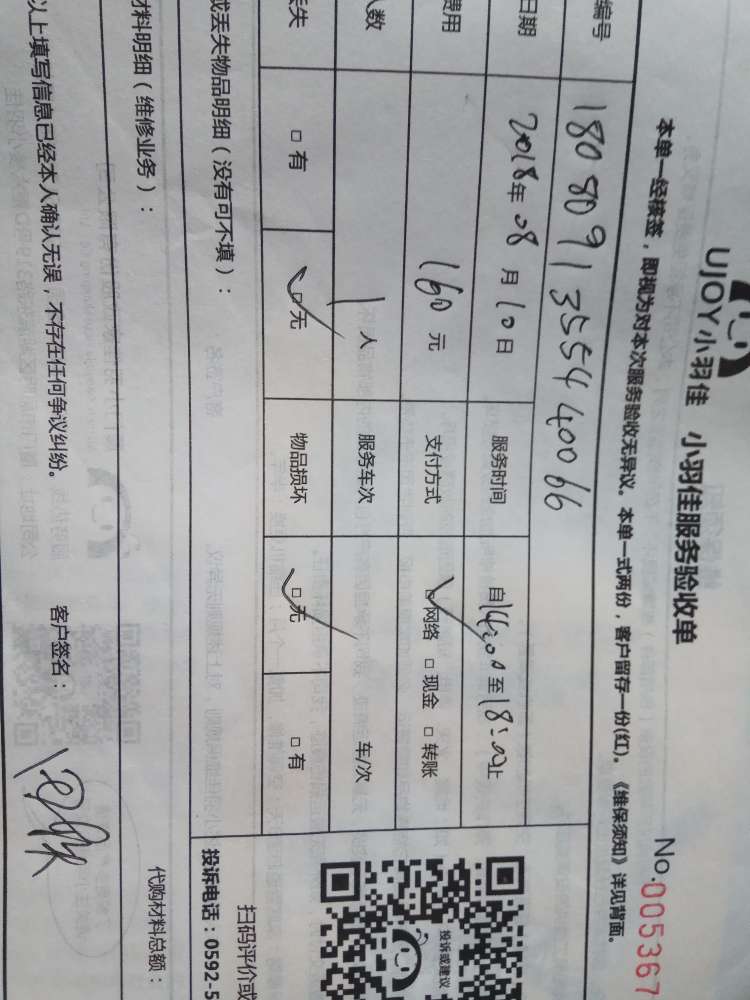 UJOY小羽佳 小羽佳服务验收单
No.005367
本单一经核签，即视为对本次服务验收无异议。本单一式两份，客户留存一份(红)。《维保须知》详见背面。
编号 1808091355440066
日期 2018年08月10日 服务时间 自14:00至18:00止
费用 160元 支付方式 ☑网络 □现金 □转账
人数 1人 服务车次 车/次
丢失 □有 ☑无 物品损坏 ☑无 □有
或丢失物品明细（没有可不填）：
投诉或建议
扫码评价或
投诉电话：0592-5
材料明细（维修业务）：
代购材料总额：
以上填写信息已经本人确认无误，不存在任何争议纠纷。 客户签名：